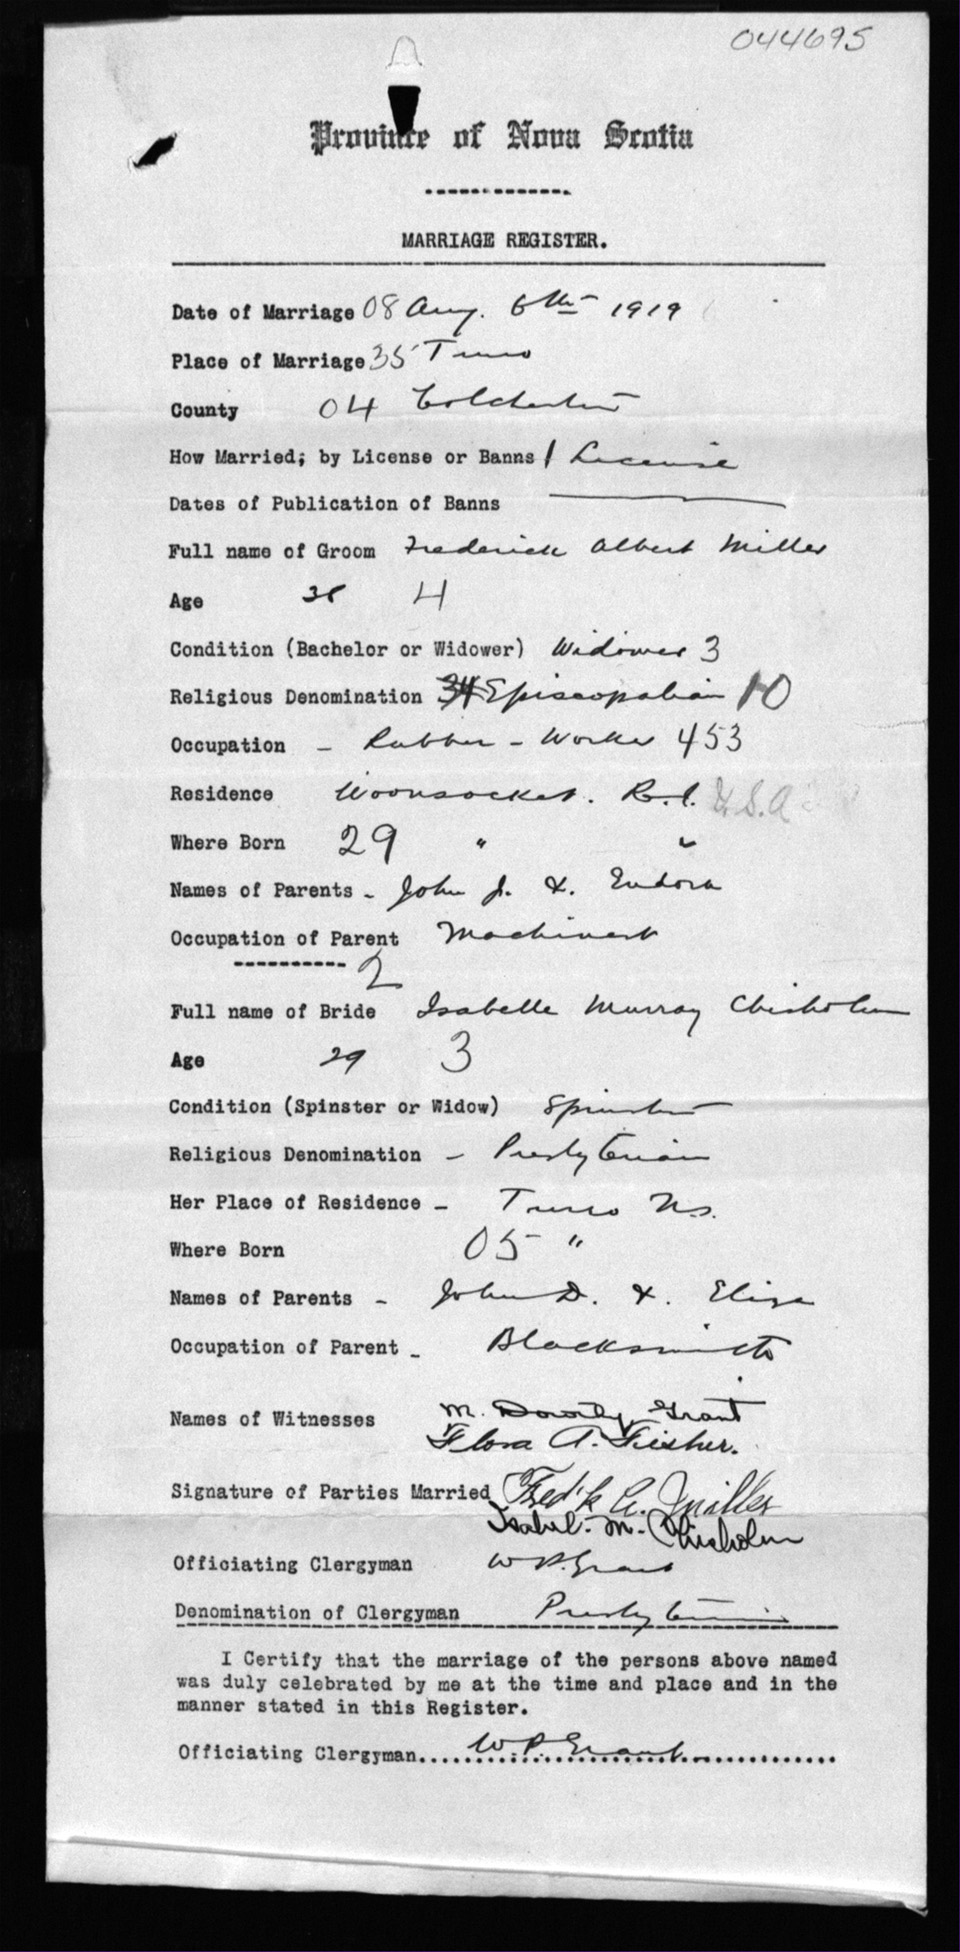 044695
Province of Nova Scotia
MARRIAGE REGISTER.
Date of Marriage 08 Aug. 6th 1919
Place of Marriage 35 Truro
County 04 Colchester
How Married; by License or Banns 1 License
Dates of Publication of Banns
Full name of Groom Frederick Albert Miller
Age 38 4
Condition (Bachelor or Widower) Widower 3
Religious Denomination 34 Episcopalian 10
Occupation - Rubber - Worker 453
Residence Woonsocket. R.I. U.S.A
Where Born 29 " "
Names of Parents - John J. & Eudora
Occupation of Parent Machinest
2
Full name of Bride Isabelle Murray Chisholm
Age 29 3
Condition (Spinster or Widow) Spinster
Religious Denomination - Presbyterian
Her Place of Residence - Truro N.S.
Where Born 05 "
Names of Parents - John D. & Eliza
Occupation of Parent - Blacksmith
Names of Witnesses M. Grant
Flora A. Fisher.
Signature of Parties Married Fred'k A. Miller
Isabel. M. Chisholm
Officiating Clergyman W P. Grant
Denomination of Clergyman Presbyterian
I Certify that the marriage of the persons above named
was duly celebrated by me at the time and place and in the
manner stated in this Register.
Officiating Clergyman.... W P. Grant